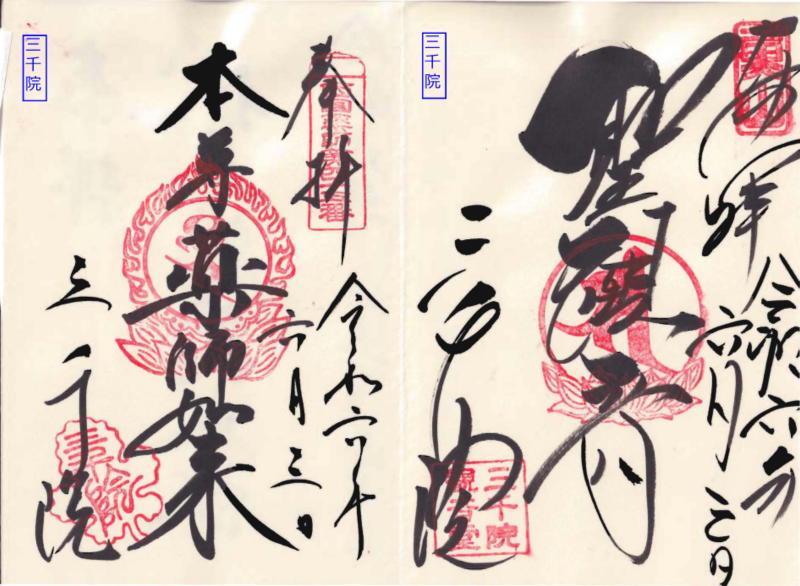 三千院
奉拝
本尊薬師如来
令和六年
六月三日
三千院
三千院
奉拝
聖観音
令和六年
六月三日
三千院
三千院
観音堂